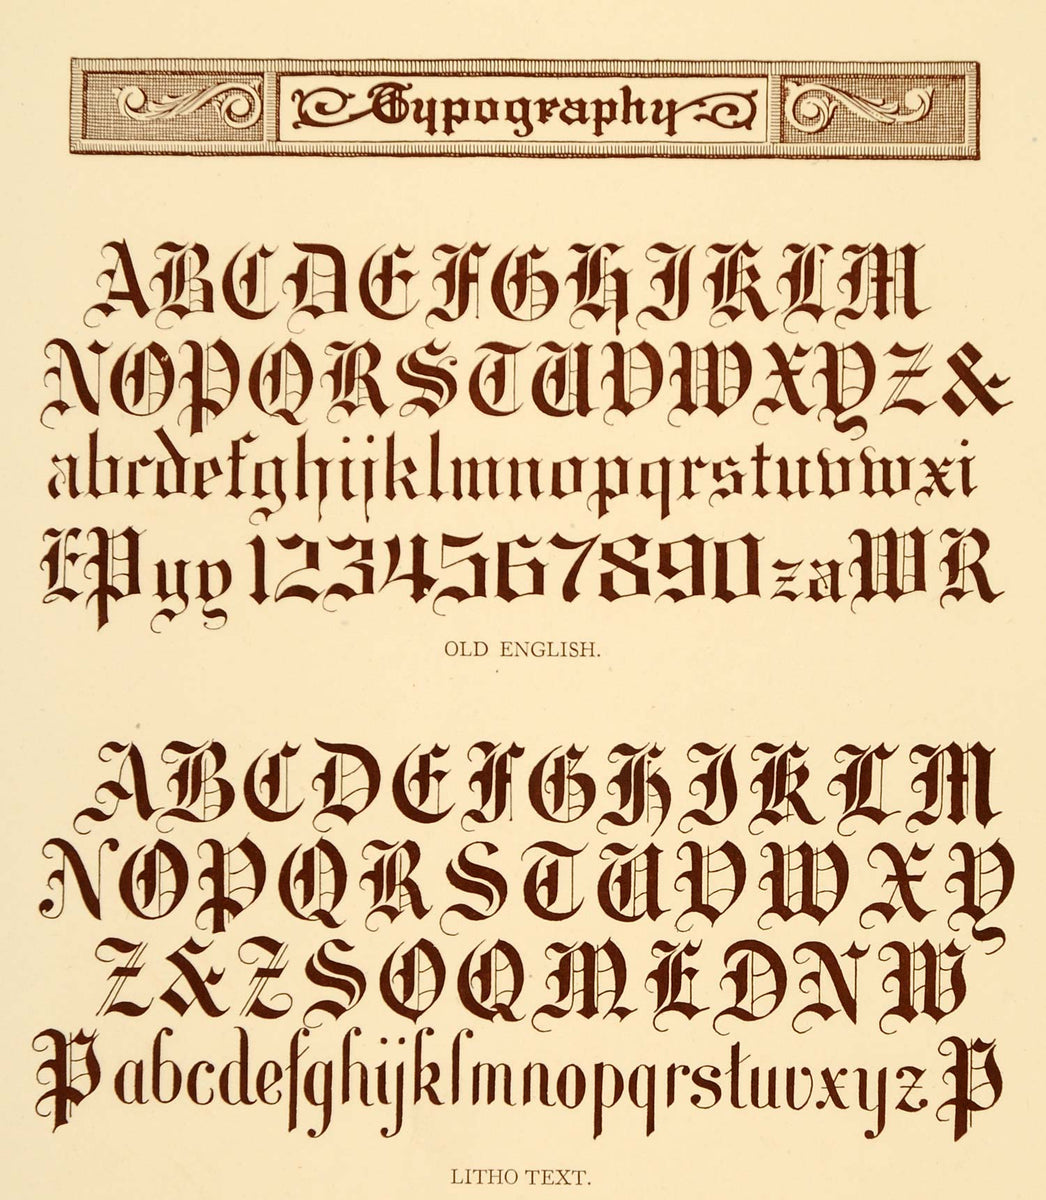 Typography
ABCDEFGHIKLM
NOPQRSTUVWXYZ&
abcdefghijklmnopqrstuvwxi
EPyy1234567890zaWR
OLD ENGLISH.
ABCDEFGHIKLM
NOPQRSTUVWXY
Z&ZSOQMEDNW
PabcdefghijklmnopqrstuvxyzP
LITHO TEXT.